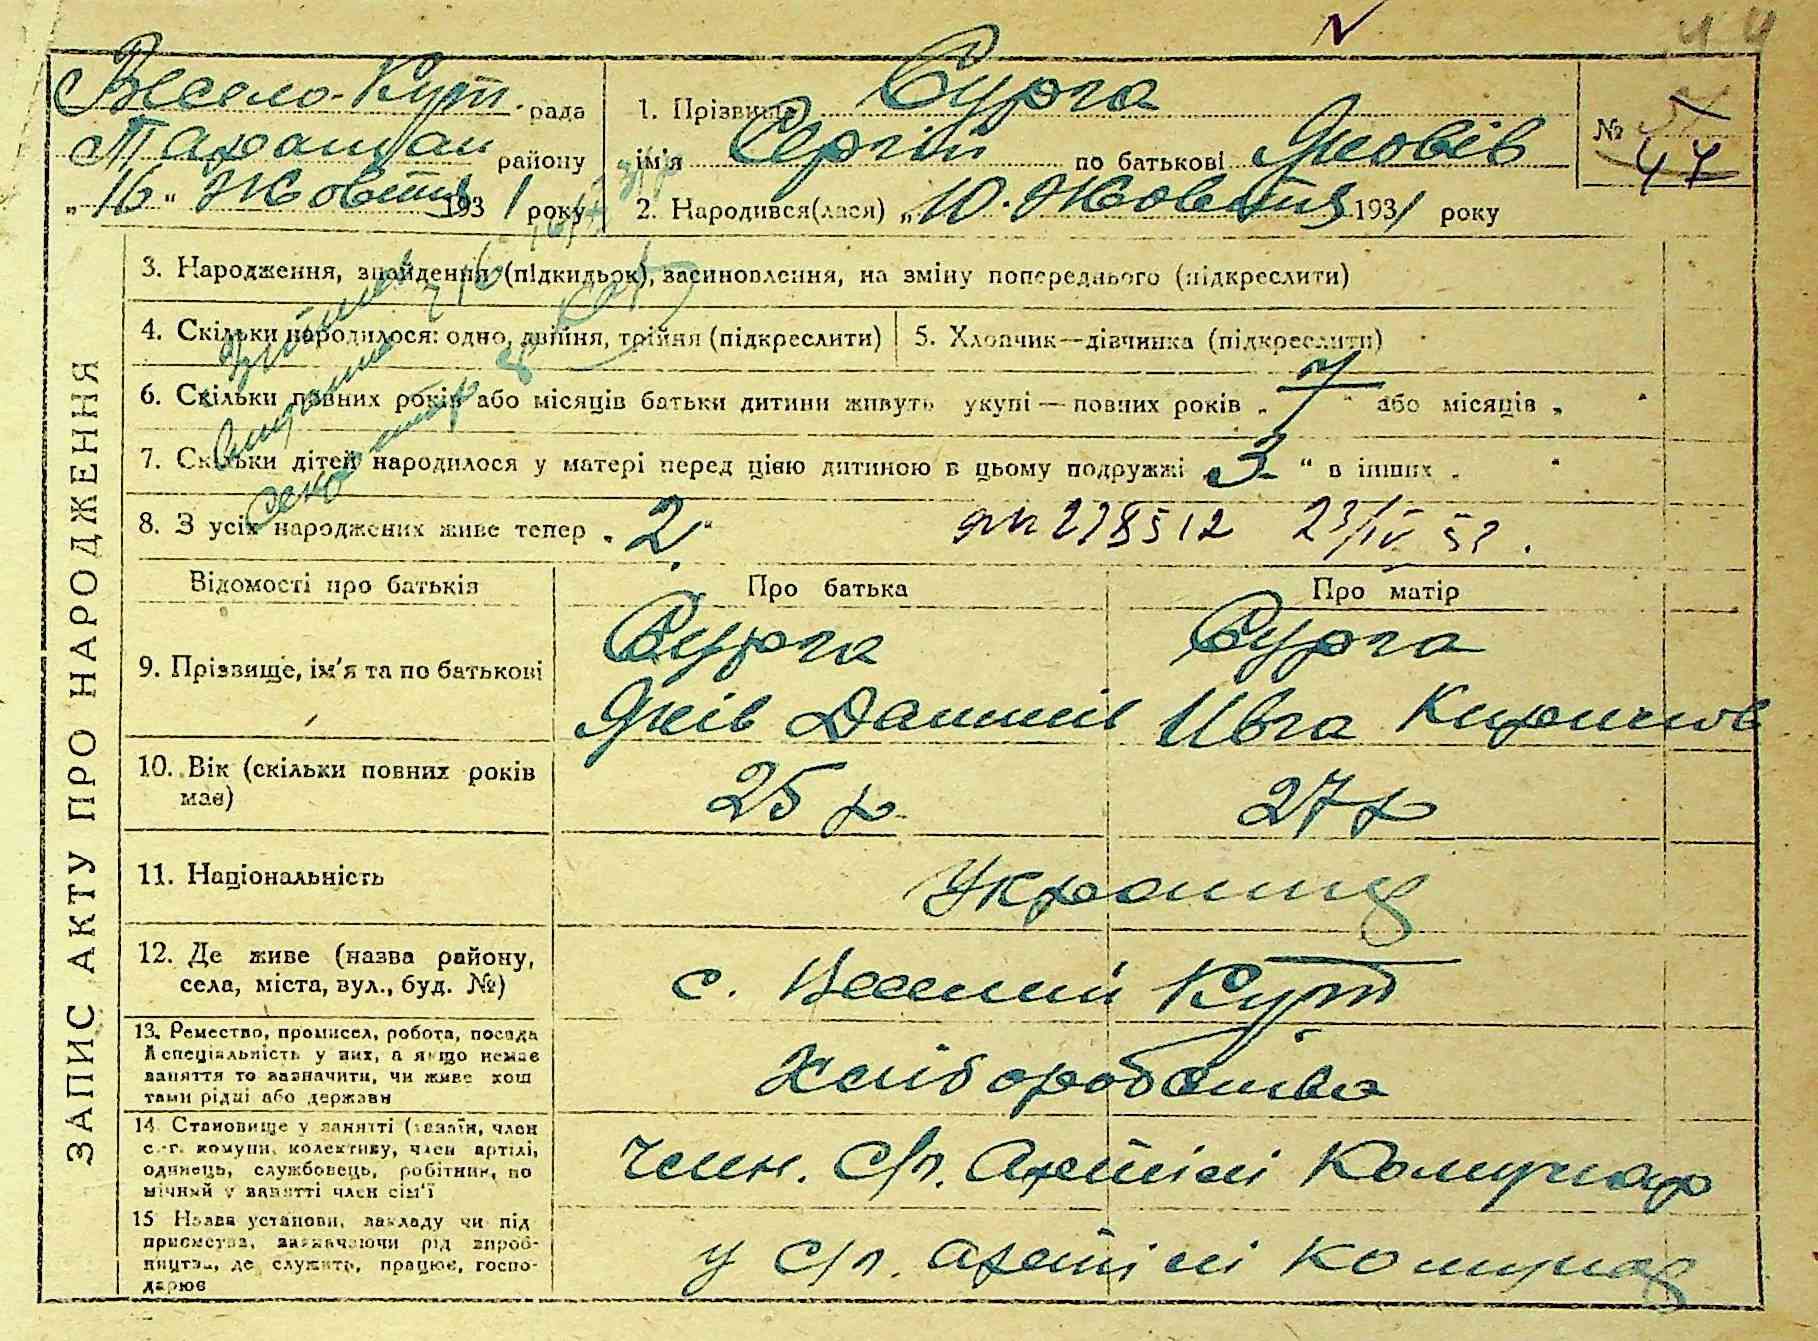 44
Весело-Кут. рада
Таращан району
„16“ Жовтня 1931 року
1. Прізвище Сурга
ім'я Сергій по батькові Яковів
2. Народився(лася) „10. Жовтня 1931 року
№ 44
ЗАПИС АКТУ ПРО НАРОДЖЕННЯ
3. Народження, знайдення (підкидьок), засиновлення, на зміну попереднього (підкреслити)
4. Скільки народилося: одно, двійня, трійня (підкреслити)
5. Хлопчик—дівчинка (підкреслити)
6. Скільки повних років або місяців батьки дитини живуть укупі — повних років „7“ або місяців „ “
7. Скільки дітей народилося у матері перед цією дитиною в цьому подружжі „3“ в інших „ “
8. З усіх народжених живе тепер „2“
228512 23/IV 53.
Відомості про батьків Про батька Про матір
9. Прізвище, ім'я та по батькові
Сурга
Яків Данилів
Сурга
Ивга Кирилов
10. Вік (скільки повних років має)
25 р
27 р
11. Національність
Українці
12. Де живе (назва району, села, міста, вул., буд. №)
с. Веселий Кут
13. Ремество, промисел, робота, посада
й спеціальність у них, а якщо немає
заняття то зазначити, чи живе кош
тами рідні або держави
Хліборобство
14. Становище у занятті (хазяїн, член
с.-г. комуни, колективу, член артілі,
одинець, службовець, робітник, по
мічний у занятті член сім'ї
член. С/г. Артілі Комунар
15 Назва установи, закладу чи під
приємства, зазначаючи рід вироб-
ництва, де служить, працює, госпо-
дарює
у с/г. артілі Комунар